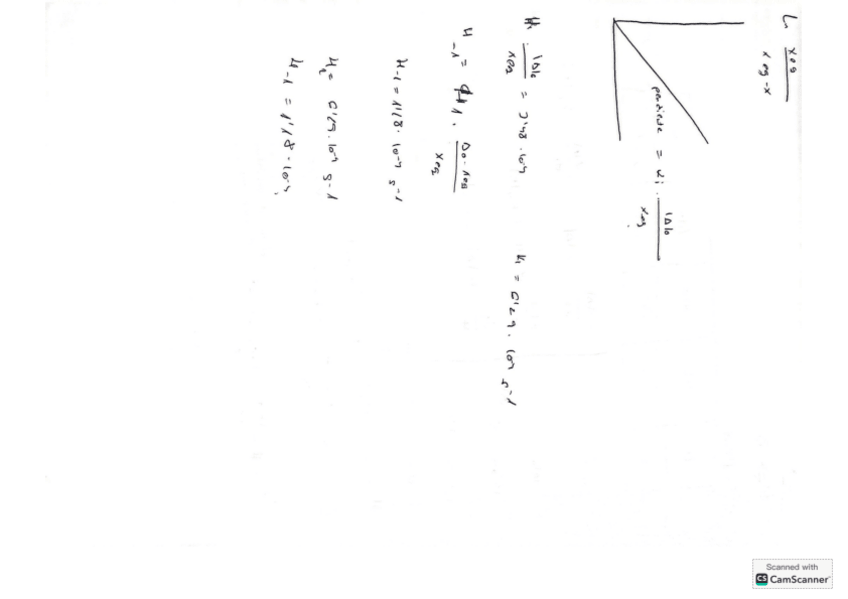 Ln xeq / xeq-x
pendiente = k1 · |A|0 / xeq
k1 · |A|0 / xeq = 2'48 · 10-4
k1 = 0'29 · 10-4 s-1
k-1 = k1 · A0-xeq / xeq
k-1 = 1'18 · 10-4 s-1
k1 = 0'29 · 10-4 s-1
k-1 = 1'18 · 10-4
Scanned with
CS CamScanner